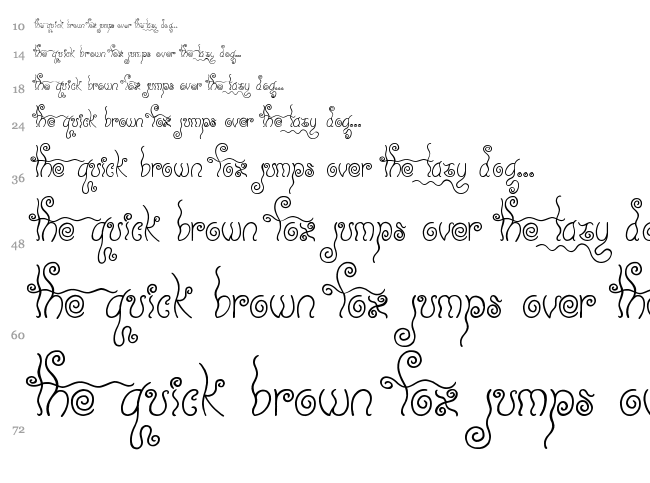 10 the quick brown fox jumps over the lazy dog...
14 the quick brown fox jumps over the lazy dog...
18 the quick brown fox jumps over the lazy dog...
24 the quick brown fox jumps over the lazy dog...
36 the quick brown fox jumps over the lazy dog...
48 the quick brown fox jumps over the lazy do
60 the quick brown fox jumps over the
72 the quick brown fox jumps ov